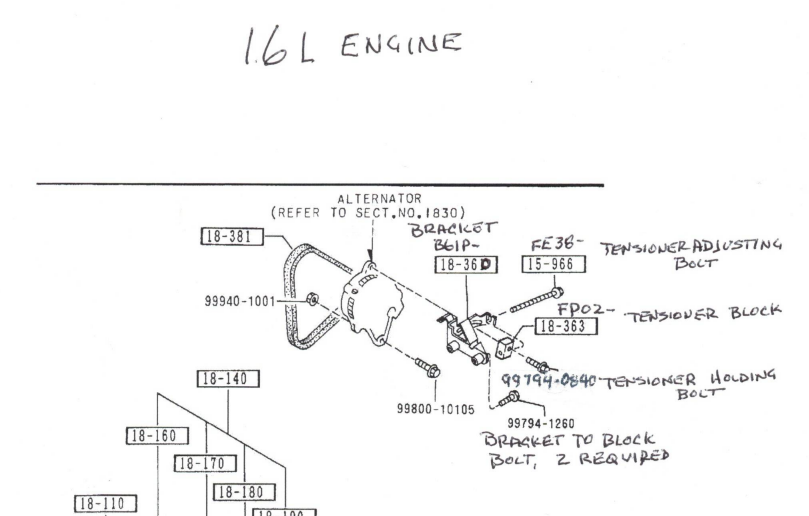 1.6 L ENGINE
ALTERNATOR
(REFER TO SECT.NO.1830)
BRACKET
B61P-
18-381
18-36D
FE3B-
15-966
TENSIONER ADJUSTING
BOLT
99940-1001
FP02-
18-363
TENSIONER BLOCK
99794-0840 TENSIONER HOLDING
BOLT
18-140
99800-10105
99794-1260
18-160
BRACKET TO BLOCK
BOLT, 2 REQUIRED
18-170
18-180
18-110